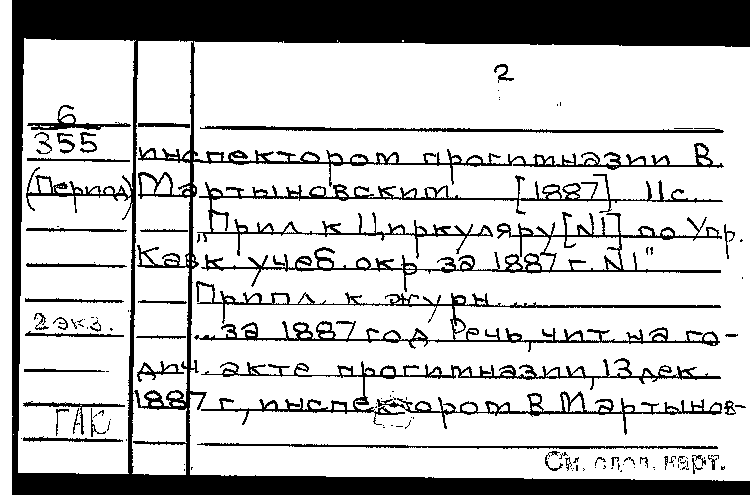 2
6
355
(Период)
инспектором прогимназии В.
Мартыновским. [1887]. 11с.
"Прил. к Циркуляру [N1] по Упр.
Кавк. учеб. окр. за 1887 г. N1."
Припл. к журн. ...
2 экз.
...за 1887 год. Речь, чит. на го-
дич. акте прогимназии, 13 дек.
1887 г., инспектором В. Мартынов-
ГАК
См. след. карт.